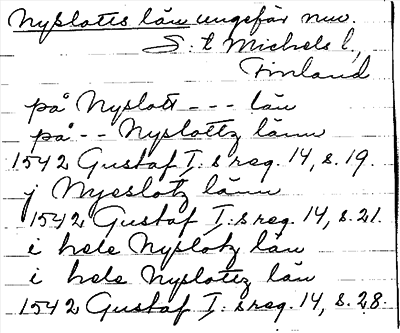 Nyslotts län ungefär nuv.
S:t Michels l.,
Finland
på Nyslott --- län
på -- Nyslottz länn
1542 Gustaf I:s reg. 14, s. 19.
j Nyeslotz länn
1542 Gustaf I:s reg. 14, s. 21.
i hele Nyslotz län
i hele Nyslottz län
1542 Gustaf I:s reg. 14, s. 28.